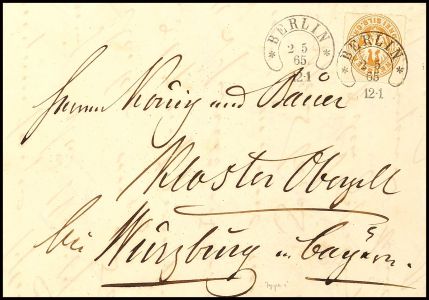 BERLIN
2 5
65
12-1
BERLIN
2 5
65
12-1
Herrn König und Bauer
Kloster Oberzell
bei Würzburg in Bayern.